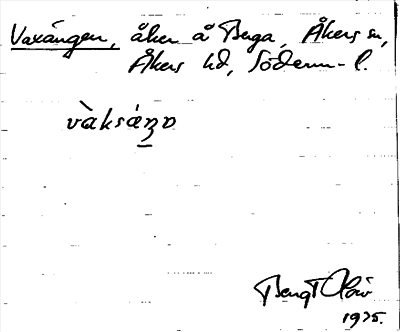 Vaxängen, åker å Bega, Åkers sn,
Åkers hd, Söderm-l.
vàksáŋɒ
Bengt
1935.